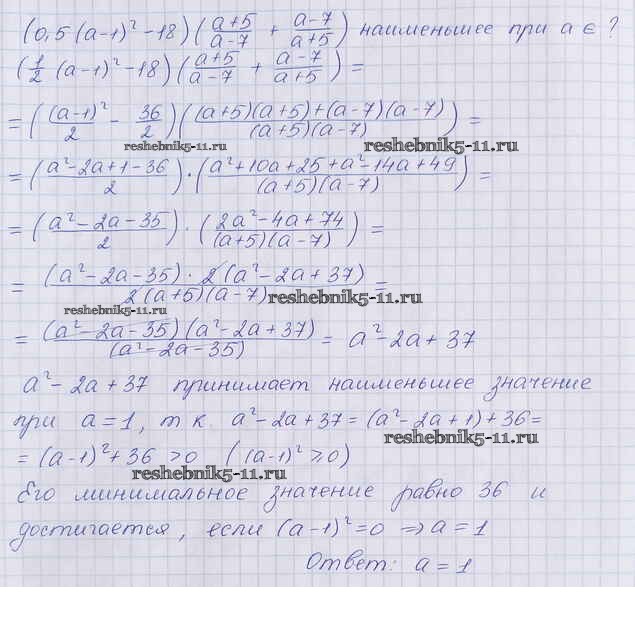 (0,5(a-1)²-18)((a+5)/(a-7) + (a-7)/(a+5)) наименьшее при a ∈ ?
(1/2 (a-1)²-18)((a+5)/(a-7) + (a-7)/(a+5)) =
= ((a-1)²/2 - 36/2)(((a+5)(a+5)+(a-7)(a-7))/((a+5)(a-7))) =
reshebnik5-11.ru reshebnik5-11.ru
= ((a²-2a+1-36)/2)·((a²+10a+25+a²-14a+49)/((a+5)(a-7))) =
= ((a²-2a-35)/2)·((2a²-4a+74)/((a+5)(a-7))) =
= ((a²-2a-35)·2(a²-2a+37))/(2(a+5)(a-7)) =
reshebnik5-11.ru
reshebnik5-11.ru
= ((a²-2a-35)(a²-2a+37))/((a²-2a-35)) = a²-2a+37
a²-2a+37 принимает наименьшее значение
при a=1, т к. a²-2a+37=(a²-2a+1)+36=
reshebnik5-11.ru
= (a-1)²+36 >0 ((a-1)²⩾0)
reshebnik5-11.ru
Его минимальное значение равно 36 и
достигается, если (a-1)²=0 ⇒ a=1
Ответ: a=1